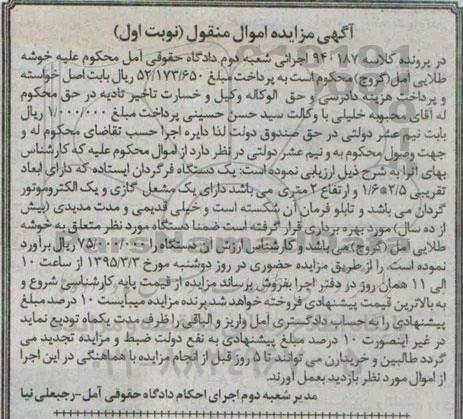 آگهی مزایده اموال منقول (نوبت اول)
در پرونده کلاسه ۹۴۰۱۸۷ اجرائی شعبه دوم دادگاه حقوقی آمل محکوم علیه خوشه
طلایی امل(گروچ)محکوم است به پرداخت مبلغ ۵۲/۱۷۳/۶۵۰ ریال بابت اصل خواسته
و پرداخت هزینه دادرسی و حق الوکاله وکیل و خسارت تاخیر تادیه در حق محکوم
له آقای محبوبه خلیلی با وکالت سید حسن حسینی پرداخت مبلغ ۱/۰۰۰/۰۰۰ ریال
بابت نیم عشر دولتی در حق صندوق دولت لذا دایره اجرا حسب تقاضای محکوم له و
جهت وصول محکوم به و نیم عشر دولتی در نظر دارد از اموال محکوم علیه که کارشناس
بهای انرا به شرح ذیل ارزیابی نموده است: یک دستگاه فرگردان ایستاده که دارای ابعاد
تقریبی ۲/۵*۱/۶ و ارتفاع ۲ متری می باشد دارای یک مشعل گازی و یک الکتروموتور
گردان می باشد و تابلو فرمان آن شکسته است و خیلی قدیمی و مدت مدیدی (بیش
از ده سال) مورد بهره برداری قرار گرفته است ضمنا دستگاه مورد نظر متعلق به خوشه
طلایی امل (گروچ)می باشد و کارشناس ارزش آن دستگاه را ۷۵/۰۰۰/۰۰۰ ریال برآورد
نموده است. را از طریق مزایده حضوری در روز دوشنبه مورخ ۱۳۹۵/۳/۳ از ساعت ۱۰
الی ۱۱ همان روز در دفتر اجرا بفروش برساند مزایده از قیمت پایه کارشناسی شروع و
به بالاترین قیمت پیشنهادی فروخته خواهد شد برنده مزایده میبایست ۱۰ درصد مبلغ
پیشنهادی را به حساب دادگستری امل واریز و الباقی را ظرف مدت یکماه تودیع نماید
در غیر اینصورت ۱۰ درصد مبلغ پیشنهادی به نفع دولت ضبط و مزایده تجدید می
گردد طالبین و خریدارن می توانند تا ۵ روز قبل از انجام مزایده با هماهنگی در این اجرا
از اموال مورد نظر بازدید بعمل آورند.
مدیر شعبه دوم اجرای احکام دادگاه حقوقی آمل-رجبعلی نیا